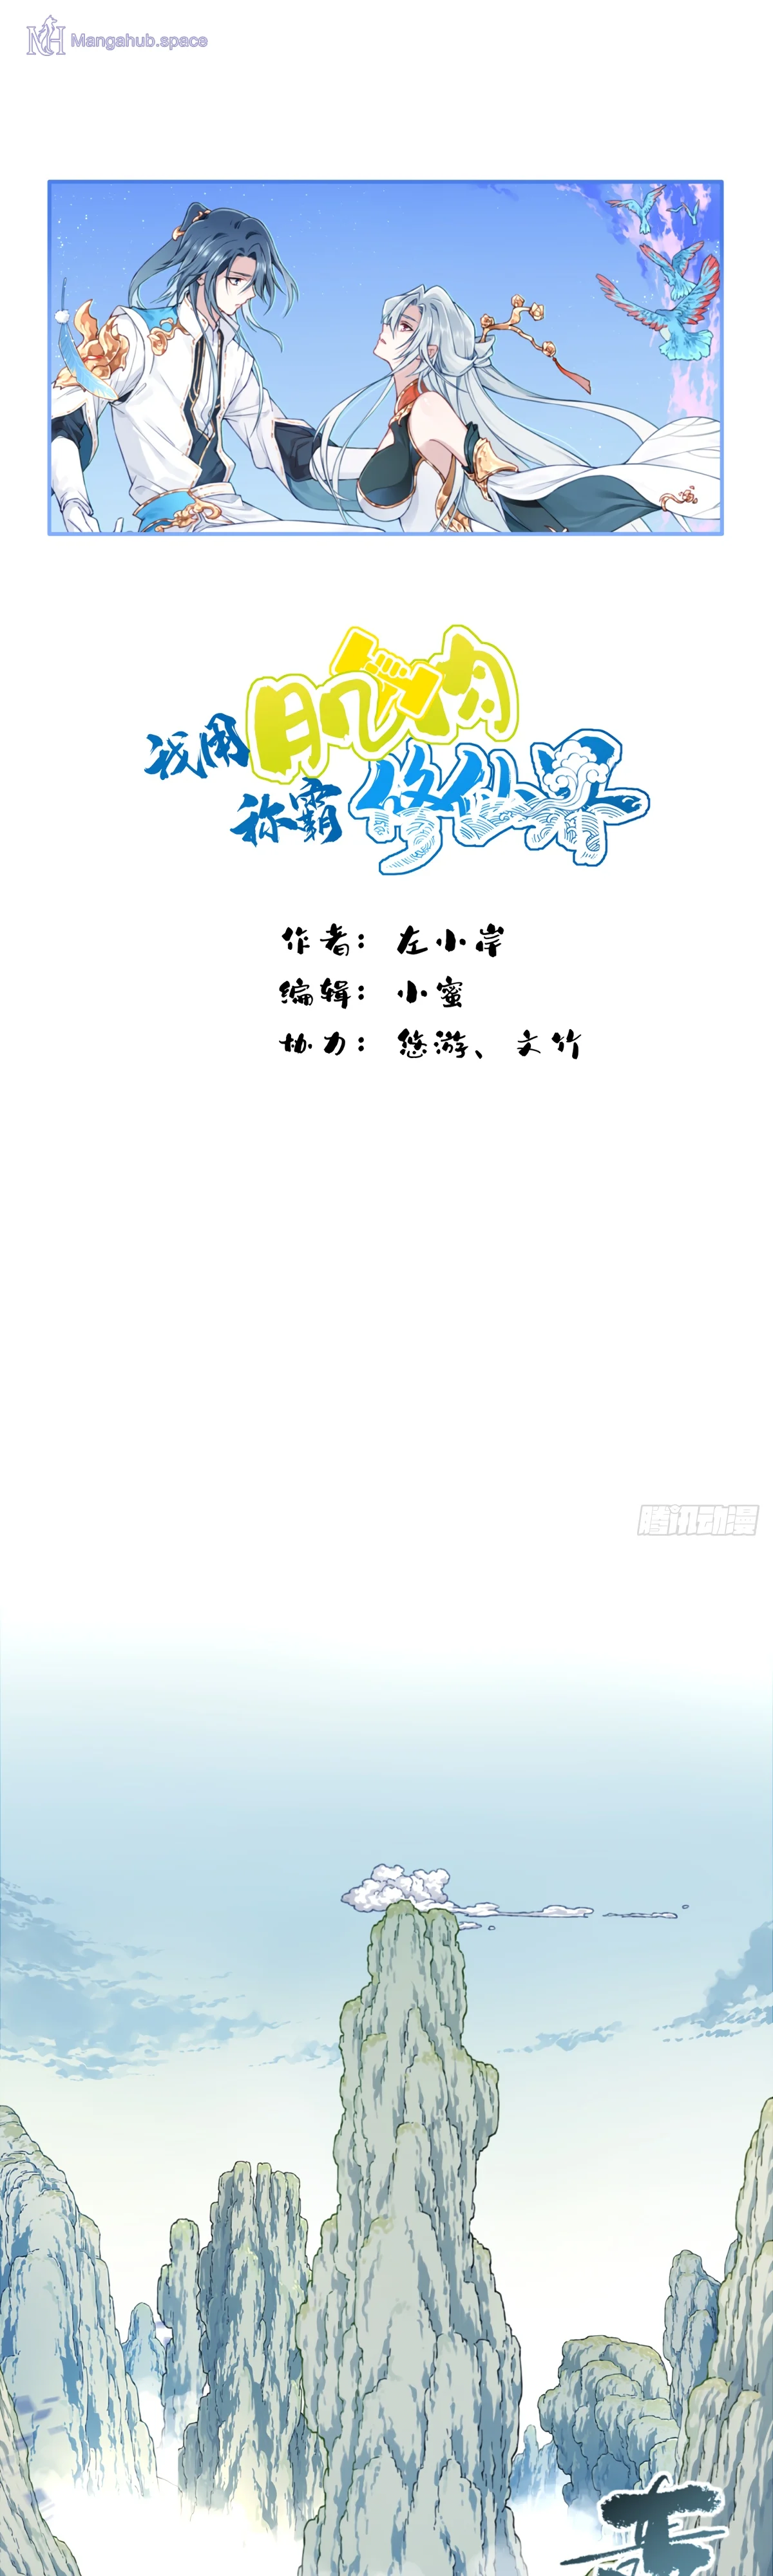 Mangahub.space
我用肌肉
称霸修仙界
作者：左小岸
编辑：小蜜
协力：悠游、文竹
腾讯动漫